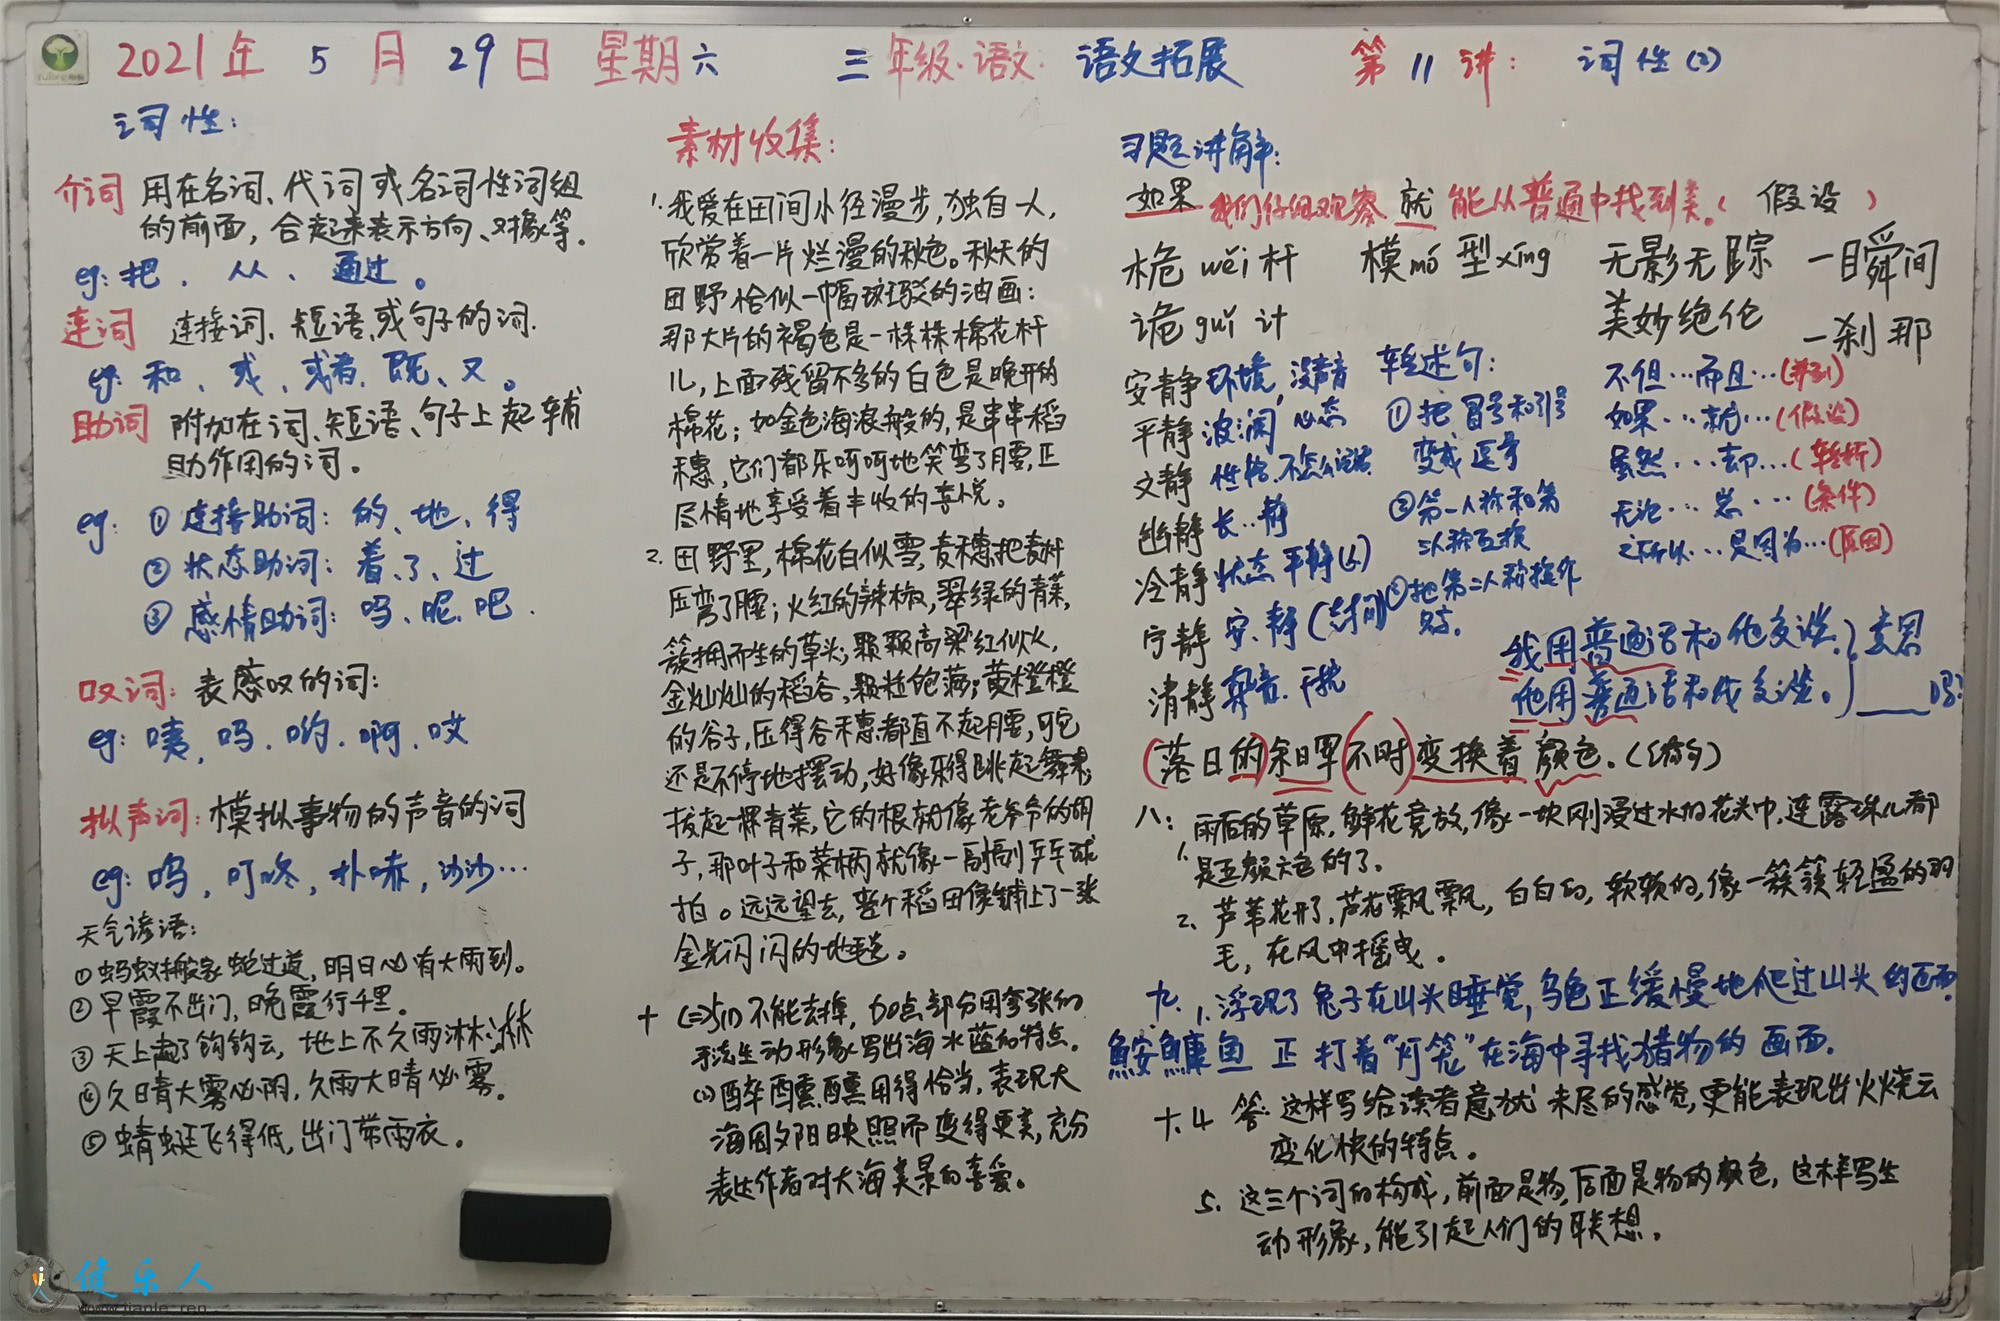 2021年 5月 29日 星期六 三年级·语文· 语文拓展 第11讲: 词性(2)
词性:
介词 用在名词、代词或名词性词组
的前面,合起来表示方向、对象等。
eg:把、从、通过。
连词 连接词、短语、或句子的词.
eg:和、或、或者、既、又。
助词 附加在词、短语、句子上起辅
助作用的词。
eg: ①连接助词:的、地、得
②状态助词:着、了、过
③感情助词:吗、呢、吧.
叹词:表感叹的词:
eg:咦,吗、哟、啊、哎
拟声词:模拟事物的声音的词
eg:呜,叮咚,扑哧,沙沙…
天气谚语:
①蚂蚁搬家蛇过道,明日必有大雨到。
②早霞不出门,晚霞行千里。
③天上起了钩钩云,地上不久雨淋淋
④久晴大雾必阴,久雨大晴必雾。
⑤蜻蜓飞得低,出门带雨衣。
素材收集:
1.我爱在田间小径漫步,独自一人,
欣赏着一片烂漫的秋色。秋天的
田野恰似一幅斑驳的油画:
那大片的褐色是一株株棉花杆
儿,上面残留不多的白色是晚开的
棉花;如金色海浪般的,是串串稻
穗,它们都乐呵呵地笑弯了腰,正
尽情地享受着丰收的喜悦。
2.田野里,棉花白似雪,麦穗把麦杆
压弯了腰;火红的辣椒,翠绿的青菜,
簇拥而生的草头;颗颗高粱红似火,
金灿灿的稻谷,颗粒饱满;黄橙橙
的谷子,压得谷穗都直不起腰,可它
还是不停地摆动,好像乐得跳起舞来,
拔起一棵青菜,它的根就像老爷爷的胡
子,那叶子和菜柄就像一副副乒乓球
拍。远远望去,整个稻田像铺上了一张
金光闪闪的地毯。
十 (二)5(1)不能去掉,加点部分用夸张的
手法生动形象写出海水蓝的特点。
(2)醉醺醺用得恰当,表现大
海因夕阳映照而变得更美,充分
表达作者对大海美景的喜爱。
习题讲解:
如果我们仔细观察就能从普通中找到美。(假设)
桅 wěi 杆 模 mó 型 xíng 无影无踪 一瞬间
诡 guǐ 计 美妙绝伦 一刹那
安静 环境,没声音
平静 波澜 心态
文静 性格.不怎么说话
幽静 长..静
冷静 状态平静(人)
宁静 安.静(时间)
清静 杂音.干扰
转述句:
①把冒号和引号
变成逗号
②第一人称和第
三人称互换
③把第二人称换作
不但…而且…(并列)
如果…就…(假设)
虽然…却…(转折)
无论…总…(条件)
之所以…是因为…(原因)
我用普通话和他交谈.}意思
他用普通话和我交谈。}____吗?
(落日的余晖(不时)变换着颜色.(缩句)
八:1.雨后的草原,鲜花竞放,像一块刚浸过水的花头巾,连露珠儿都
是五颜六色的了。
2.芦苇花开了,芦花飘飘,白白的,软软的,像一簇簇轻盈的羽
毛,在风中摇曳。
九.1.浮现了兔子在山头睡觉,乌龟正缓慢地爬过山头的画面.
鮟鱇鱼正打着“灯笼”在海中寻找猎物的画面.
十.4 答:这样写给读者意犹未尽的感觉,更能表现出火烧云
变化快的特点。
5.这三个词的构成,前面是物,后面是物的颜色,这样写生
动形象,能引起人们的联想。
健乐人
www.jianle.ren